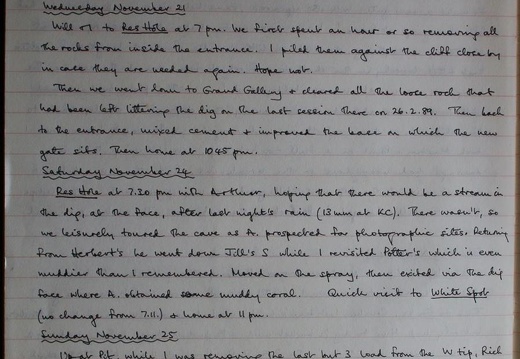 Wednesday November 21
Will & I to Res Hole at 7 pm. We first spent an hour or so removing all
the rocks from inside the entrance. I piled them against the cliff close by
in case they are needed again. Hope not.
Then we went down to Grand Gallery & cleared all the loose rock that
had been left littering the dig on the last session there on 26.2.89. Then back
to the entrance, mixed cement & improved the base on which the new
gate sits. Then home at 10.45 pm.
Saturday November 24
Res Hole at 7.30 pm with Arthur, hoping that there would be a stream in
the dig, at the face, after last night's rain (13 mm at KC). There wasn't, so
we leisurely toured the cave as A. prospected for photographic sites. Returning
from Herbert's he went down Jill's S while I revisited Potter's which is even
muddier than I remembered. Moved on the spray, then exited via the dig
face where A. obtained some muddy coral. Quick visit to White Spot
(no change from 7.11.) & home at 11 pm.
Sunday November 25
at Pit. While I was removing the last but 3 load from the W tip, Rich